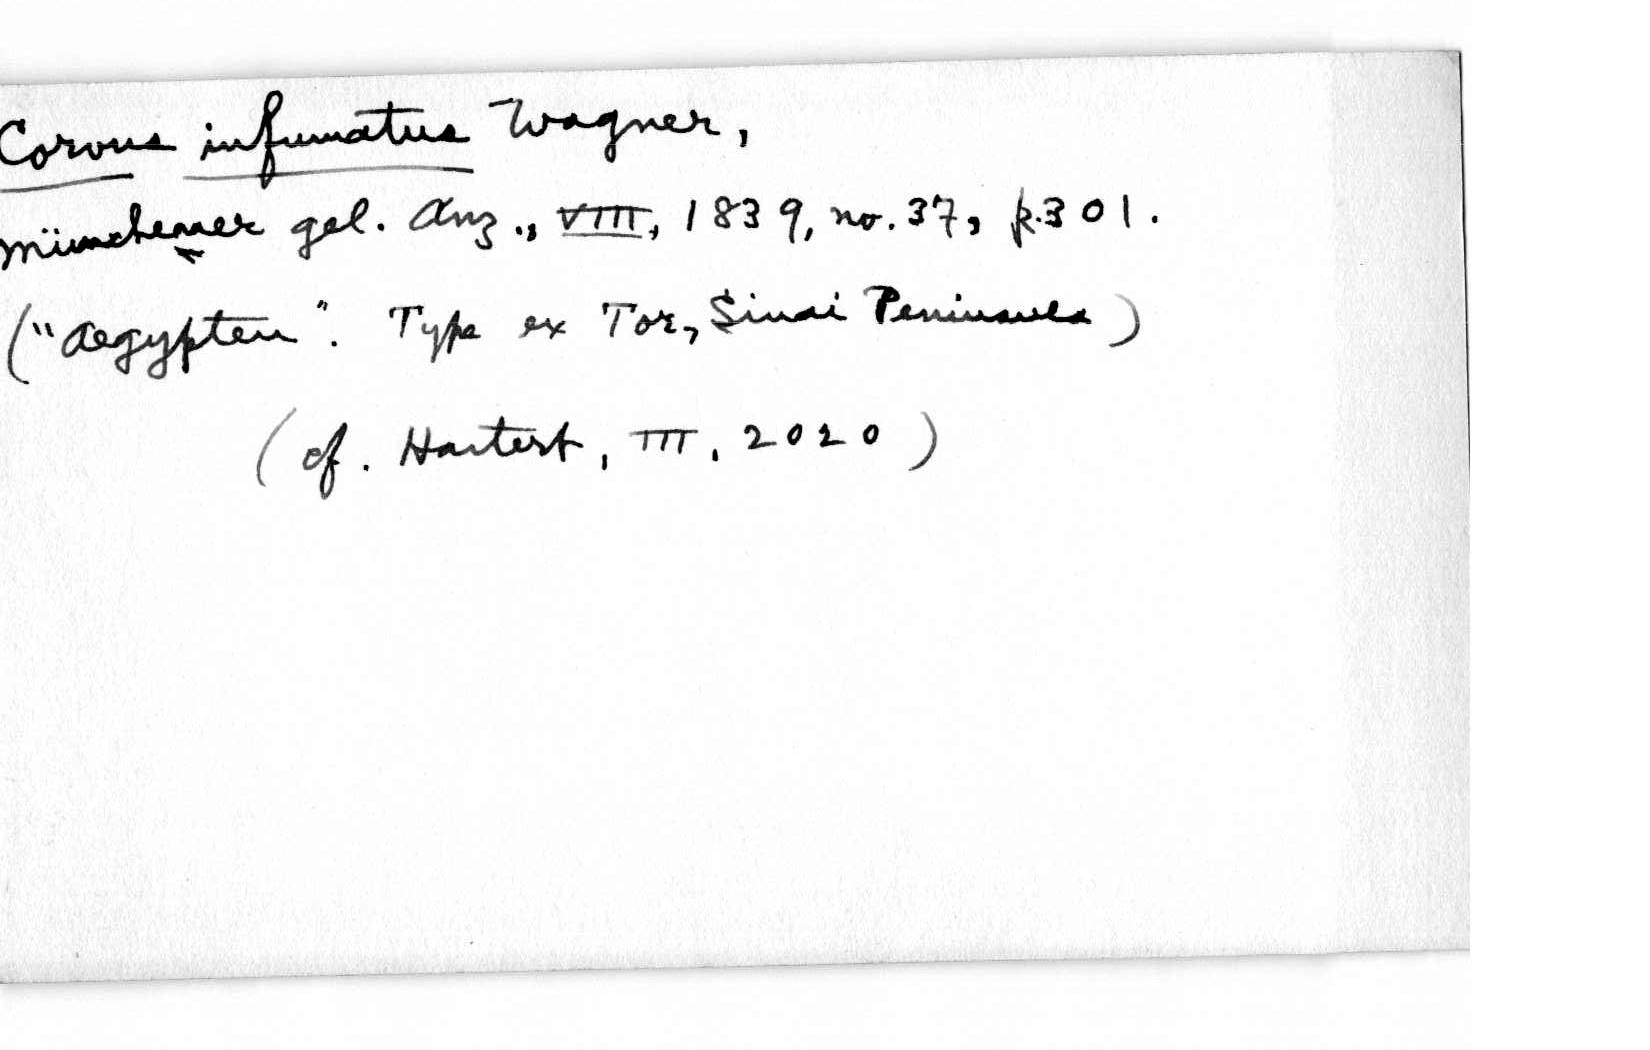 Corvus infumatus Wagner,
Münchener gel. Anz., VIII, 1839, no. 37, p. 301.
("Aegypten". Type ex Tor, Sinai Peninsula)
(cf. Hartert, III, 2020)